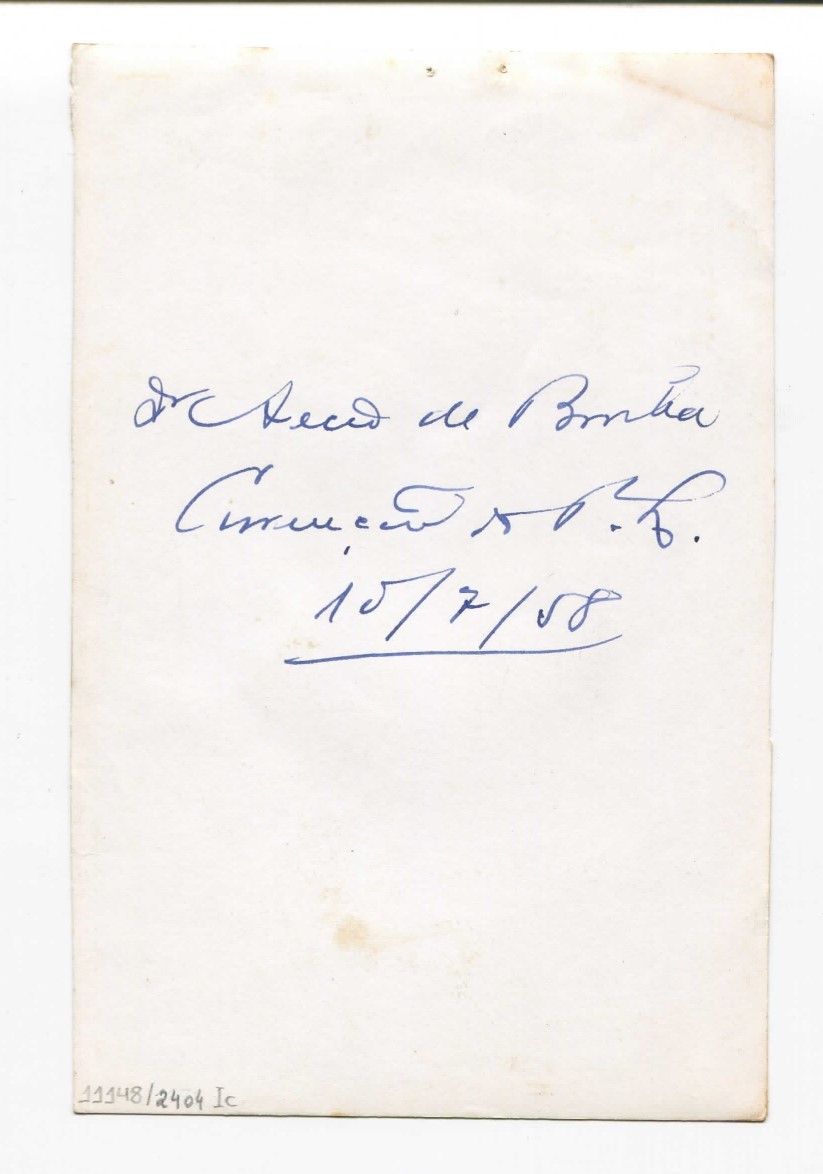 Dr Aecio de Borba
Convenção do P. R.
15/7/58
11148/2404 Ic